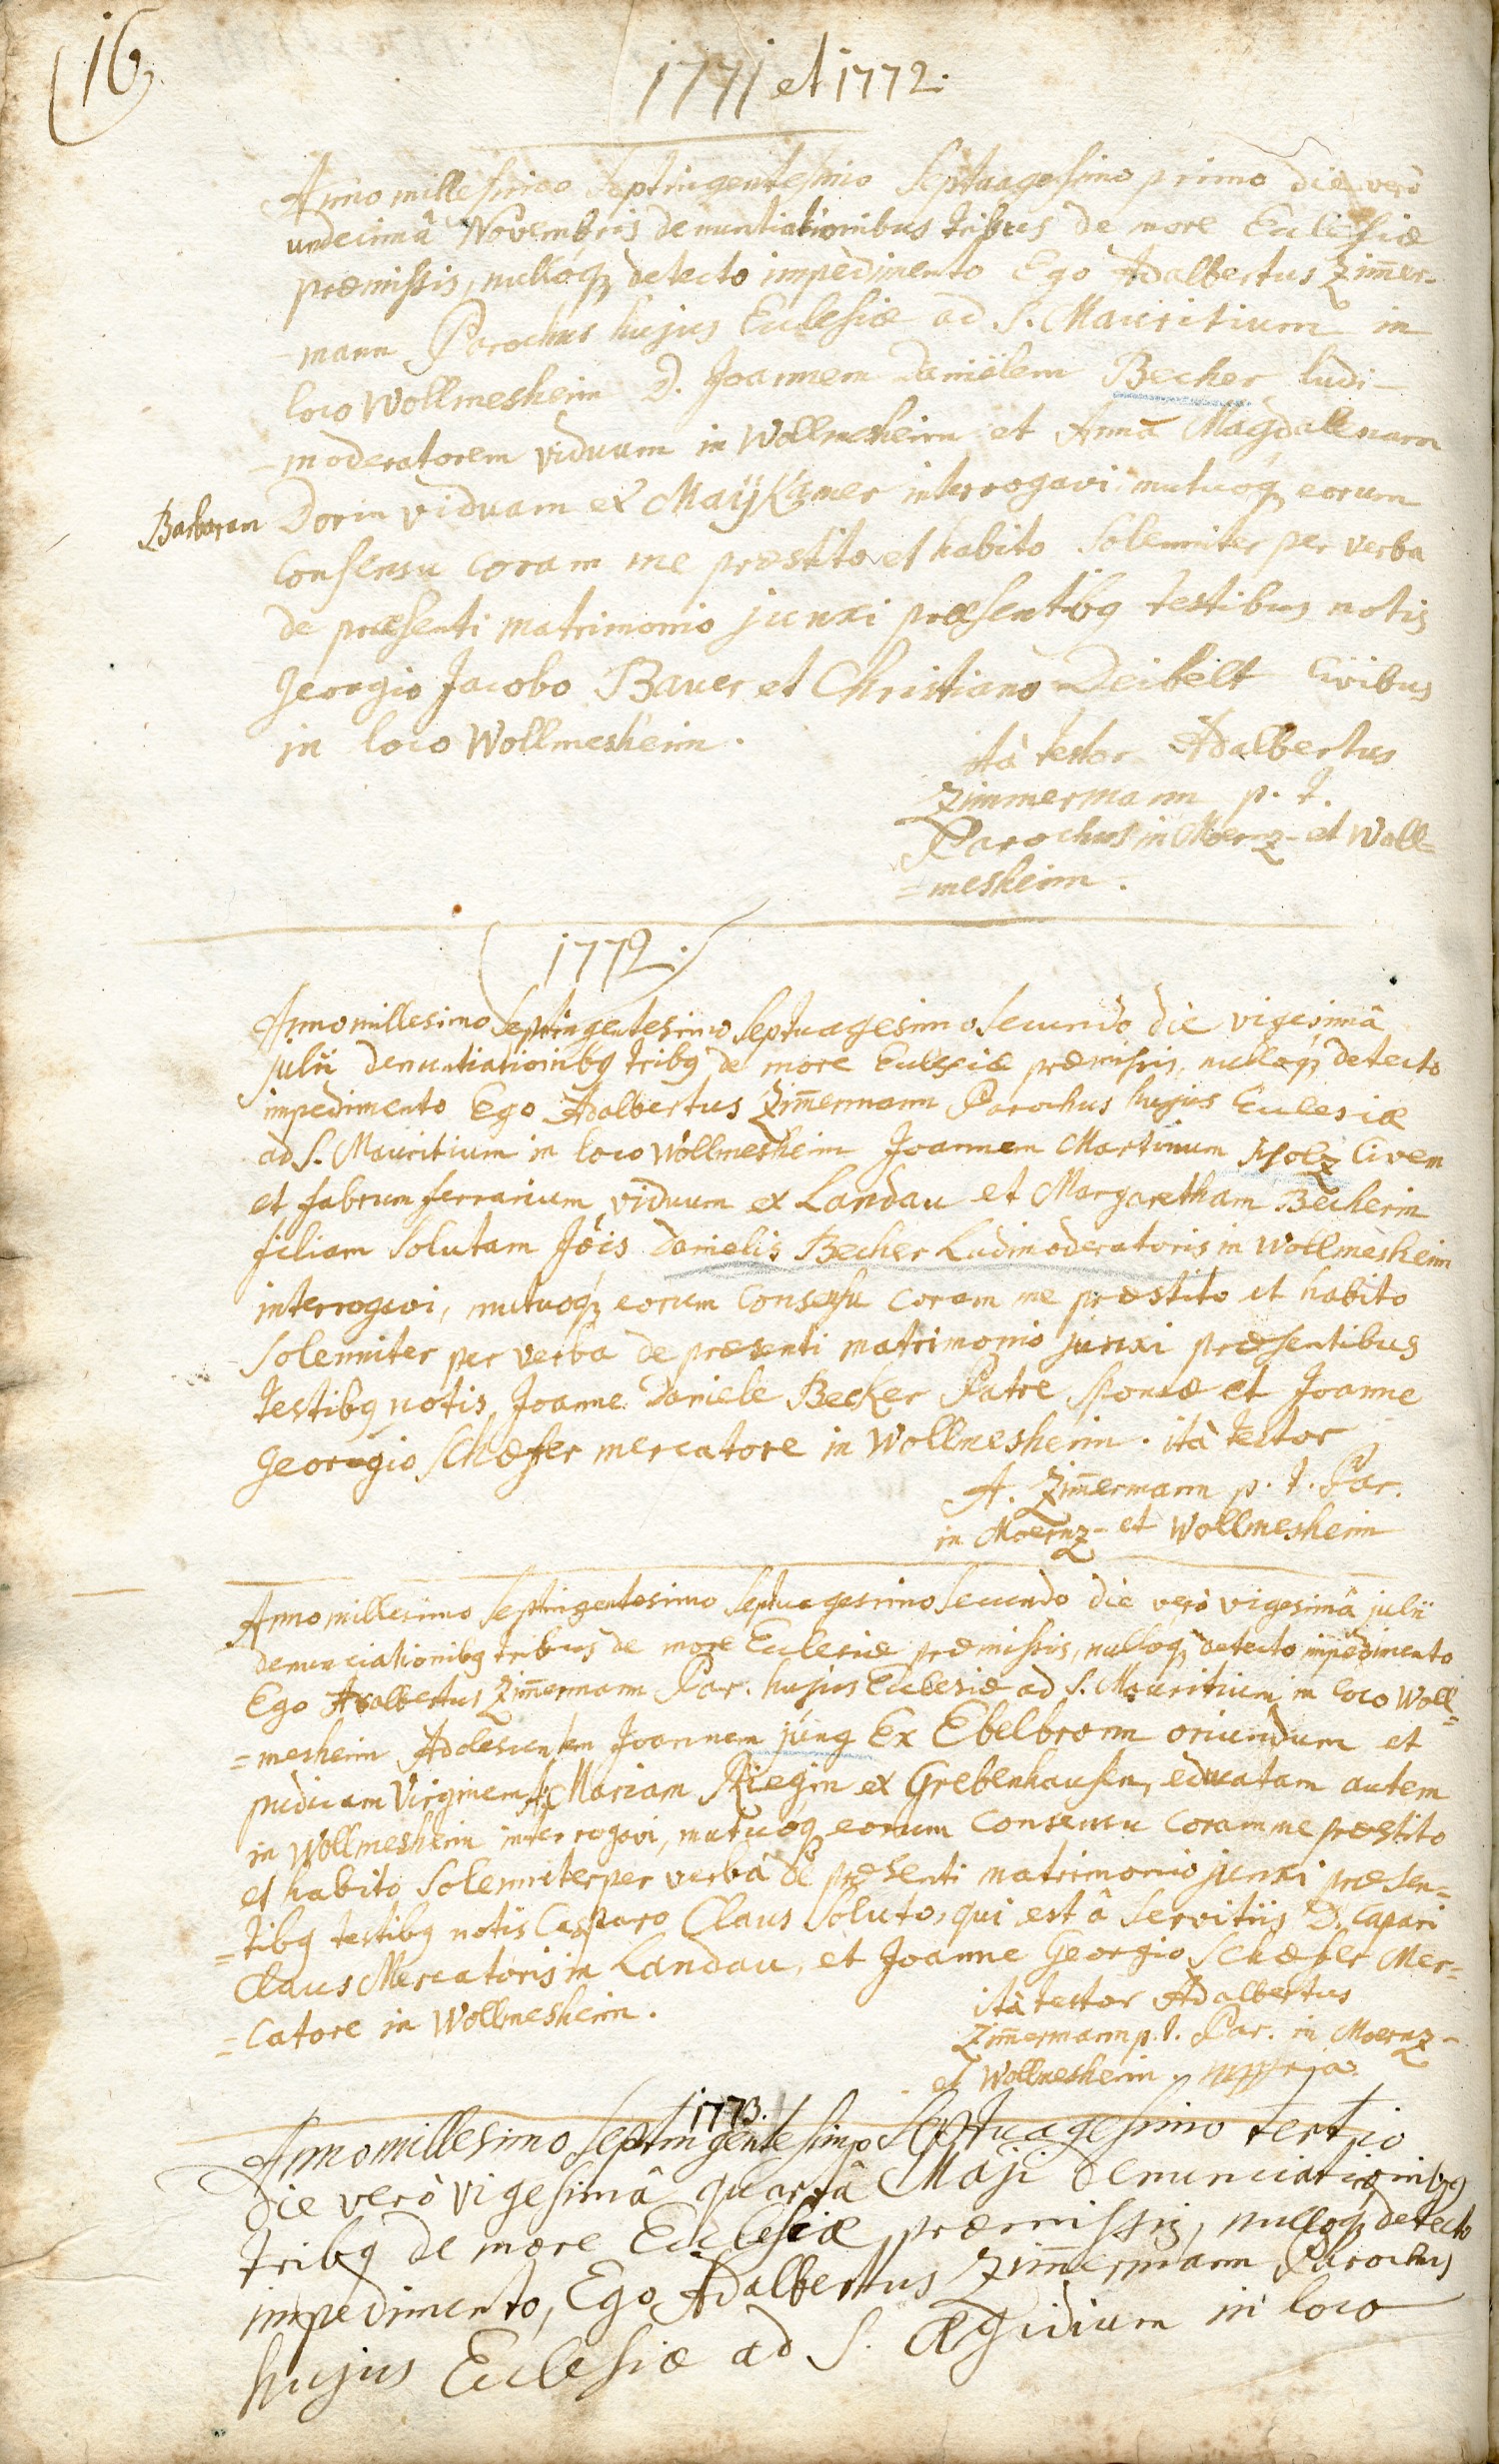 16.
1771 et 1772.
Anno millesimo Septingentesimo Septuagesimo primo die verò
undecimâ Novembris denuntiationibus tribus de more Ecclesiæ
præmissis, nullóqꝫ detecto impedimento Ego Adalbertus Zim̄er-
-mann Parochus hujus Ecclesiæ ad S. Mauritium in
loco Wollmesheim D. Joannem Danielem Becher ludi-
-moderatorem viduum in Wollmesheim et Annā Magdalenam
Barbaram Dorin viduam ex Maÿkamer interrogavi mutuóqꝫ eorum
consensu coram me præstito et habito Solemniter per verba
de præsenti matrimonio junxi præsentibꝫ testibus notis
Georgio Jacobo Bauer et Christiano Deibelt Civibus
in loco Wollmesheim.
ità testor Adalbertus
Zimmermann p. t.
Parochus in Moerz- et Woll=
=mesheim.
1772.
Anno millesimo Septingentesimo Septuagesimo Secundo die vigesimâ
julii denuntiationibꝫ tribꝫ de more Ecclesiæ præmissis, nullóqꝫ detecto
impedimento Ego Adalbertus Zim̄ermann Parochus hujus Ecclesiæ
ad S. Mauritium in loco Wollmesheim Joannem Martinum Scholz Civem
et fabrum ferrarium viduum ex Landau et Margaretham Becherin
filiam Solutam Jois Danielis Becher Ludimoderatoris in Wollmesheim
interrogavi, mutuoqꝫ eorum Consensu coram me præstito et habito
Solemniter per verba de præsenti matrimonio junxi præsentibus
testibꝫ notis, Joanne Daniele Becker Patre Sponsæ et Joanne
Georgio Schæfer mercatore in Wollmesheim. ità testor
A. Zim̄ermann p. t. Par.
in Moerz- et Wollmesheim
Anno millesimo Septingentesimo Septuagesimo Secundo die verò vigesimâ julii
denunciationibꝫ tribus de more Ecclesiæ præmissis, nulloqꝫ detecto impedimento
Ego Adalbertus Zim̄ermann Par. hujus Ecclesiæ ad S. Mauritium in loco Woll=
=mesheim Adolescentem Joannem jung Ex Ebelbronn oriundum et
pudicam Virginem A. Mariam Riegin ex Grebenhausen, educatam autem
in Wollmesheim interrogavi, mutuóqꝫ eorum consensu coram me præstito
et habito Solemniter per verba de præsenti matrimonio junxi præsen=
=tibꝫ testibꝫ notis Casparo Claus Soluto, qui est â Servitiis D. Capari
Claus Mercatoris in Landau, et Joanne Georgio Schæfer Mer=
=catore in Wollmesheim.
ità testor Adalbertus
Zim̄ermann p. t. Par. in Moerz-
et Wollmesheim. mppria.
1773.
Anno millesimo Septingentesimo Septuagesimo tertio
die verò vigesimâ quartâ Maji denunciationibꝫ
tribꝫ de more Ecclesiæ præmissis, nulloqꝫ detecto
impedimento, Ego Adalbertus Zim̄ermann Parochus
hujus Ecclesiæ ad S. Ægidium in loco